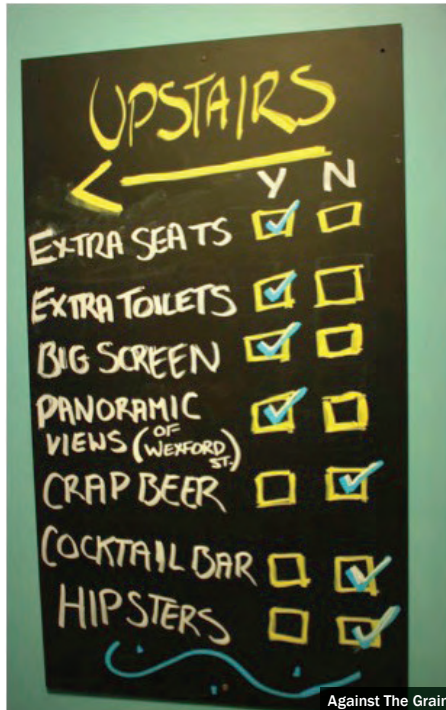 UPSTAIRS
Y N
EXTRA SEATS
EXTRA TOILETS
BIG SCREEN
PANORAMIC
VIEWS (OF WEXFORD ST.)
CRAP BEER
COCKTAIL BAR
HIPSTERS
Against The Grain